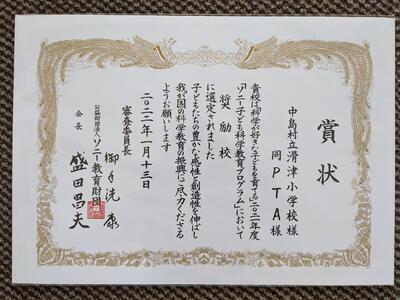 賞状
中島村立滑津小学校様
同PTA様
貴校は科学が好きな子どもを育てる二〇二一年度
「ソニー子ども科学教育プログラム」において
奨励校
に選定されました
子どもたちの豊かな感性・創造性を伸ばし
我が国の科学教育の振興に尽力くださる
ようお願いします
二〇二二年一月十三日
審査委員長
御手洗康
公益財団法人ソニー教育財団
会長
盛田昌夫